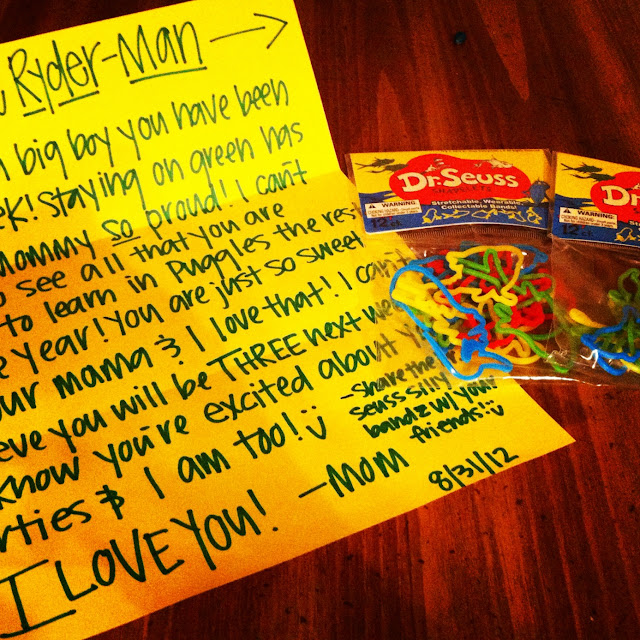 Ryder-Man →
big boy you have been
staying on green has
mommy so proud! I can't
see all that you are
to learn in Puggles the res
year! You are just so sweet
mama & I love that! I can't
you will be THREE next we
know you're excited about
& I am too!
-Share the
seuss silly
bandz w/ your
friends!
I LOVE YOU! -Mom
8/31/12
Dr. Seuss
Stretchable, Wearable,
Collectable Bands!
WARNING:
12 ct.
Dr.
WARNING:
12 ct.